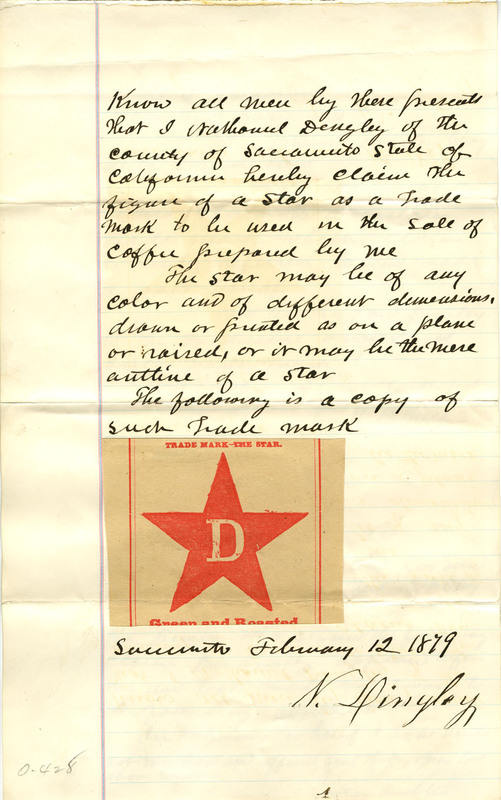 Know all men by these presents
that I Nathaniel Dingley of the
County of Sacramento State of
California hereby claim the
figure of a Star as a Trade
Mark to be used in the Sale of
Coffee prepared by me
The Star may be of any
color and of different dimensions,
drawn or printed as on a plane
or raised, or it may be the mere
outline of a Star
The following is a copy of
such Trade Mark
TRADE MARK—THE STAR.
D
Green and Roasted
Sacramento February 12 1879
N. Dingley
0-428